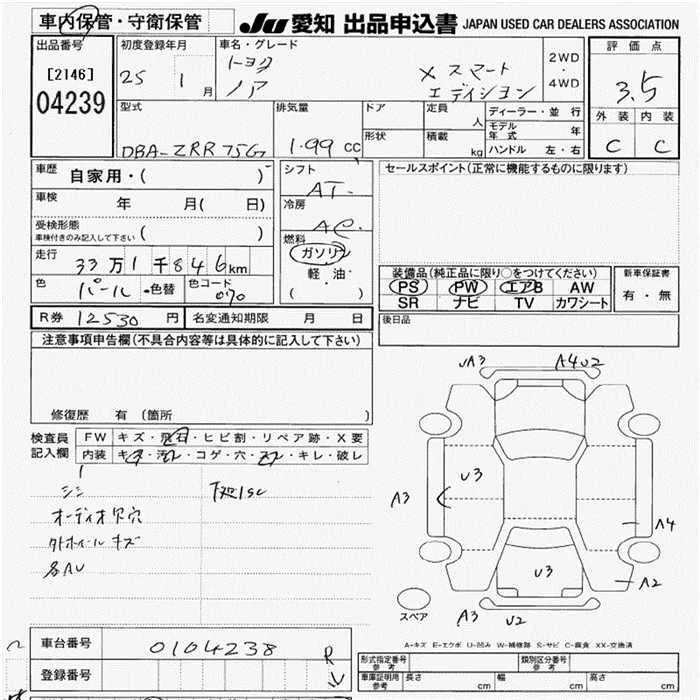 車内保管・守衛保管
JU 愛知 出品申込書 JAPAN USED CAR DEALERS ASSOCIATION
出品番号
[2146]
04239
初度登録年月
25 1 月
車名・グレード
トヨタ
ノア
X スマート
エディション
2WD
・
4WD
評価点
3.5
外装 内装
C C
型式
DBA-ZRR75G
排気量
1.99 CC
ドア
形状
定員 人
積載 kg
ディーラー・並行
モデル年式 年
ハンドル 左・右
車歴 自家用・( )
車検 年 月( 日)
受検形態
車検付きのみ記入して下さい ( )
走行 33万1千846km
色 パール ・色替 色コード 070
シフト
AT
冷房
AC
燃料
ガソリン
軽・油・
( )
セールスポイント(正常に機能するものに限ります)
装備品(純正品に限り○をつけてください)
PS PW エアB AW
SR ナビ TV カワシート
新車保証書
有・無
R券 12530 円 名変通知期限 月 日
後日品
注意事項申告欄(不具合内容等は具体的に記入して下さい)
修復歴 有 (箇所 )
検査員
記入欄
FW キズ・飛石・ヒビ割・リペア跡・X要
内装 キズ・汚レ・コゲ・穴・スレ・キレ・破レ
シミ
下廻りSC
オーディオ欠穴
タイヤホイールキズ
各AU
UA3 A4U2
A3 U3
A4
U3 A2
A3 U2
スペア
A-キズ E-エクボ U-凹み W-補修跡 S-サビ C-腐食 XX-交換済
車台番号 0104238
登録番号
R
形式指定番号 参考
類別区分番号 参考
車庫証明用 参考
長さ cm 幅 cm 高さ cm